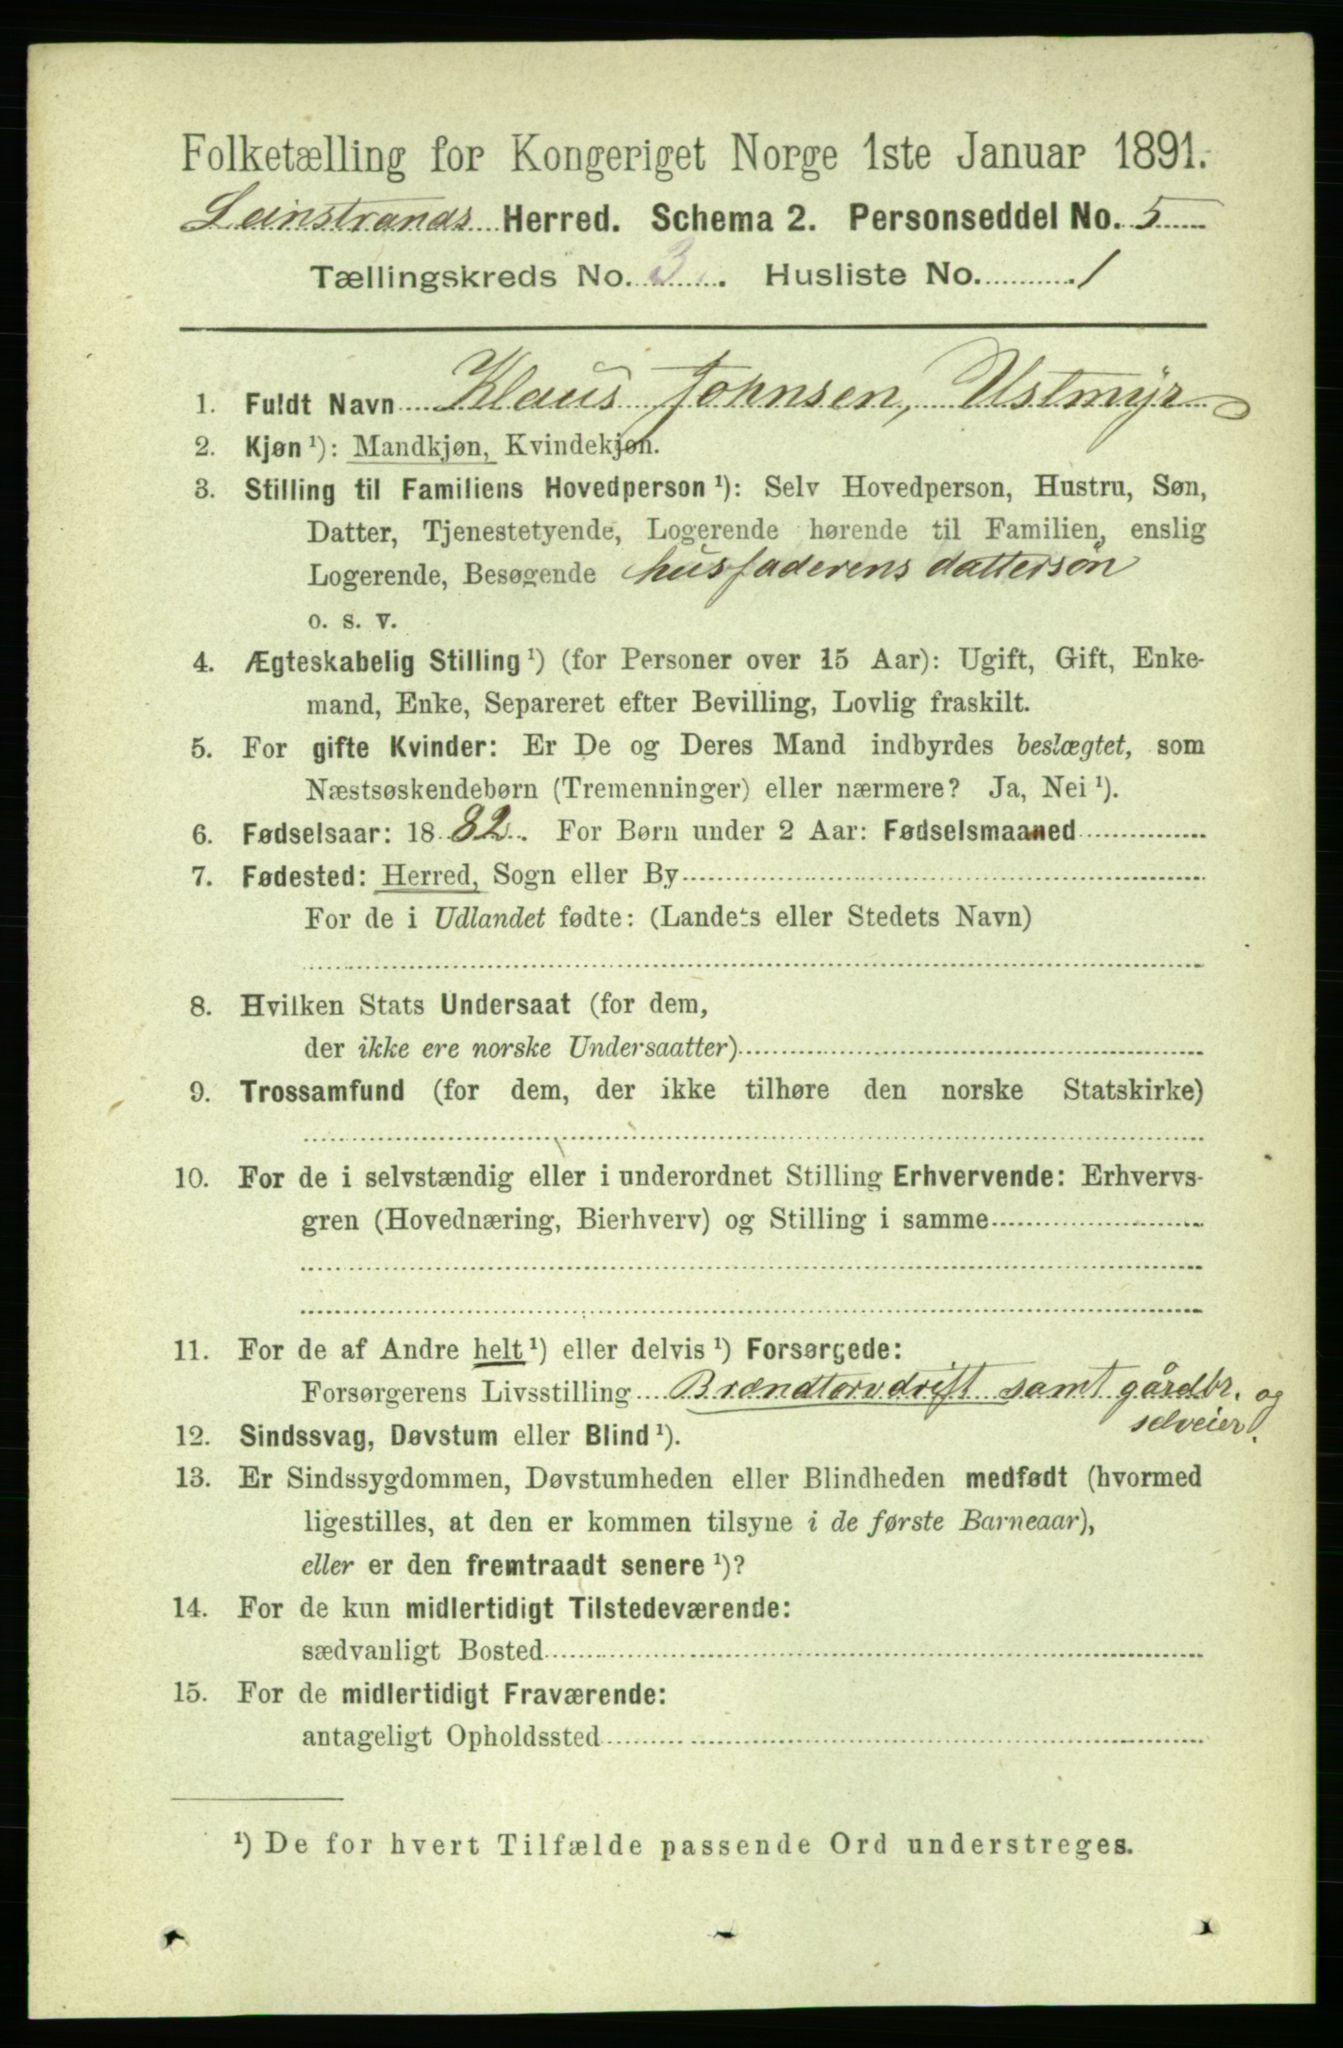 Folketælling for Kongeriget Norge 1ste Januar 1891.
Leinstrands Herred. Schema 2. Personseddel No. 5
Tællingskreds No. 3. Husliste No. 1
1. Fuldt Navn Klaus Johnsen, Ustmyr
2. Kjøn ¹): Mandkjøn, Kvindekjøn.
3. Stilling til Familiens Hovedperson ¹): Selv Hovedperson, Hustru, Søn,
Datter, Tjenestetyende, Logerende hørende til Familien, enslig
Logerende, Besøgende husfaderens dattersøn
o. s. v.
4. Ægteskabelig Stilling ¹) (for Personer over 15 Aar): Ugift, Gift, Enke-
mand, Enke, Separeret efter Bevilling, Lovlig fraskilt.
5. For gifte Kvinder: Er De og Deres Mand indbyrdes beslægtet, som
Næstsøskendebørn (Tremenninger) eller nærmere? Ja, Nei ¹).
6. Fødselsaar: 1882. For Børn under 2 Aar: Fødselsmaaned
7. Fødested: Herred, Sogn eller By
For de i Udlandet fødte: (Landets eller Stedets Navn)
8. Hvilken Stats Undersaat (for dem,
der ikke ere norske Undersaatter)
9. Trossamfund (for dem, der ikke tilhøre den norske Statskirke)
10. For de i selvstændig eller i underordnet Stilling Erhvervende: Erhvervs-
gren (Hovednæring, Bierhverv) og Stilling i samme
11. For de af Andre helt ¹) eller delvis ¹) Forsørgede:
Forsørgerens Livsstilling Brændtorvdrift samt gårdbr. og
selveier.
12. Sindssvag, Døvstum eller Blind ¹).
13. Er Sindssygdommen, Døvstumheden eller Blindheden medfødt (hvormed
ligestilles, at den er kommen tilsyne i de første Barneaar),
eller er den fremtraadt senere ¹)?
14. For de kun midlertidigt Tilstedeværende:
sædvanligt Bosted
15. For de midlertidigt Fraværende:
antageligt Opholdssted
¹) De for hvert Tilfælde passende Ord understreges.